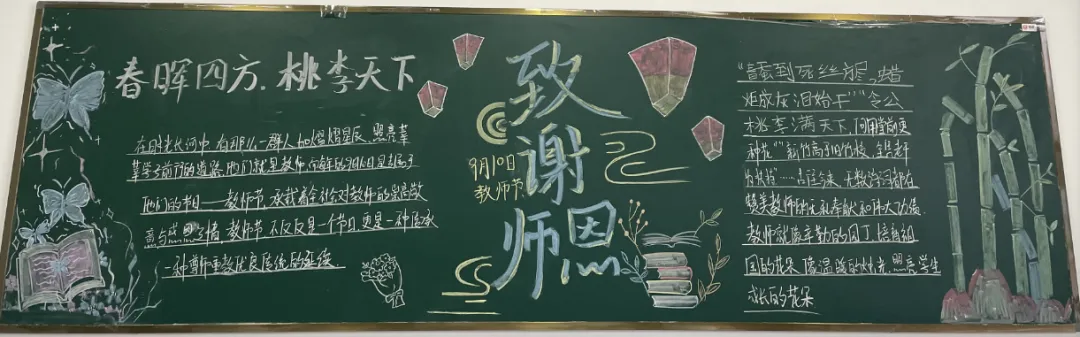 春晖四方.桃李天下
在时光长河中,有那么一群人如熠熠星辰,照亮莘
莘学子前行的道路,他们就是教师,每年的9月10日是属于
他们的节日——教师节,承载着全社会对教师的崇高敬
意与感恩之情 教师节不仅仅是一个节日,更是一种传承
一种尊师重教优良传统的延续.
致谢师恩
9月10日
教师节
"春蚕到死丝方尽,蜡
炬成灰泪始干""令公
桃李满天下,何用堂前更
种花""新竹高于旧竹枝,全凭老干
为扶持"……古往今来,无数诗词都在
赞美教师的无私奉献和伟大功绩.
教师就像辛勤的园丁,培育祖
国的花朵 像温暖的灿光,照亮学生
成长的花朵